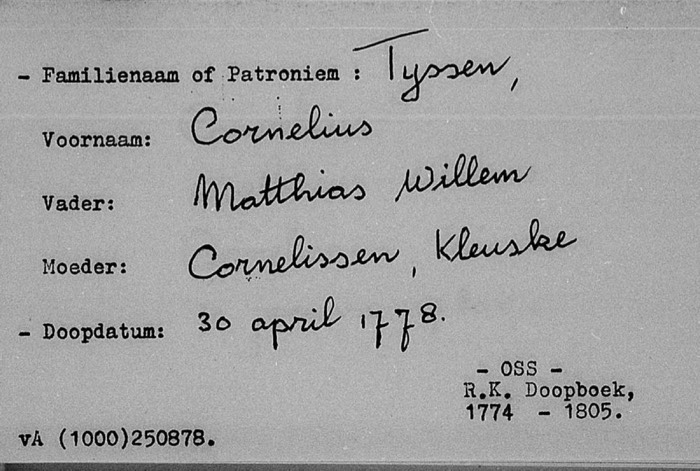 - Familienaam of Patroniem : Tyssen,
Voornaam: Cornelius
Vader: Matthias Willem
Moeder: Cornelissen, Kleuske
- Doopdatum: 30 april 1778.
- OSS -
R.K. Doopboek,
1774 - 1805.
vA (1000)250878.